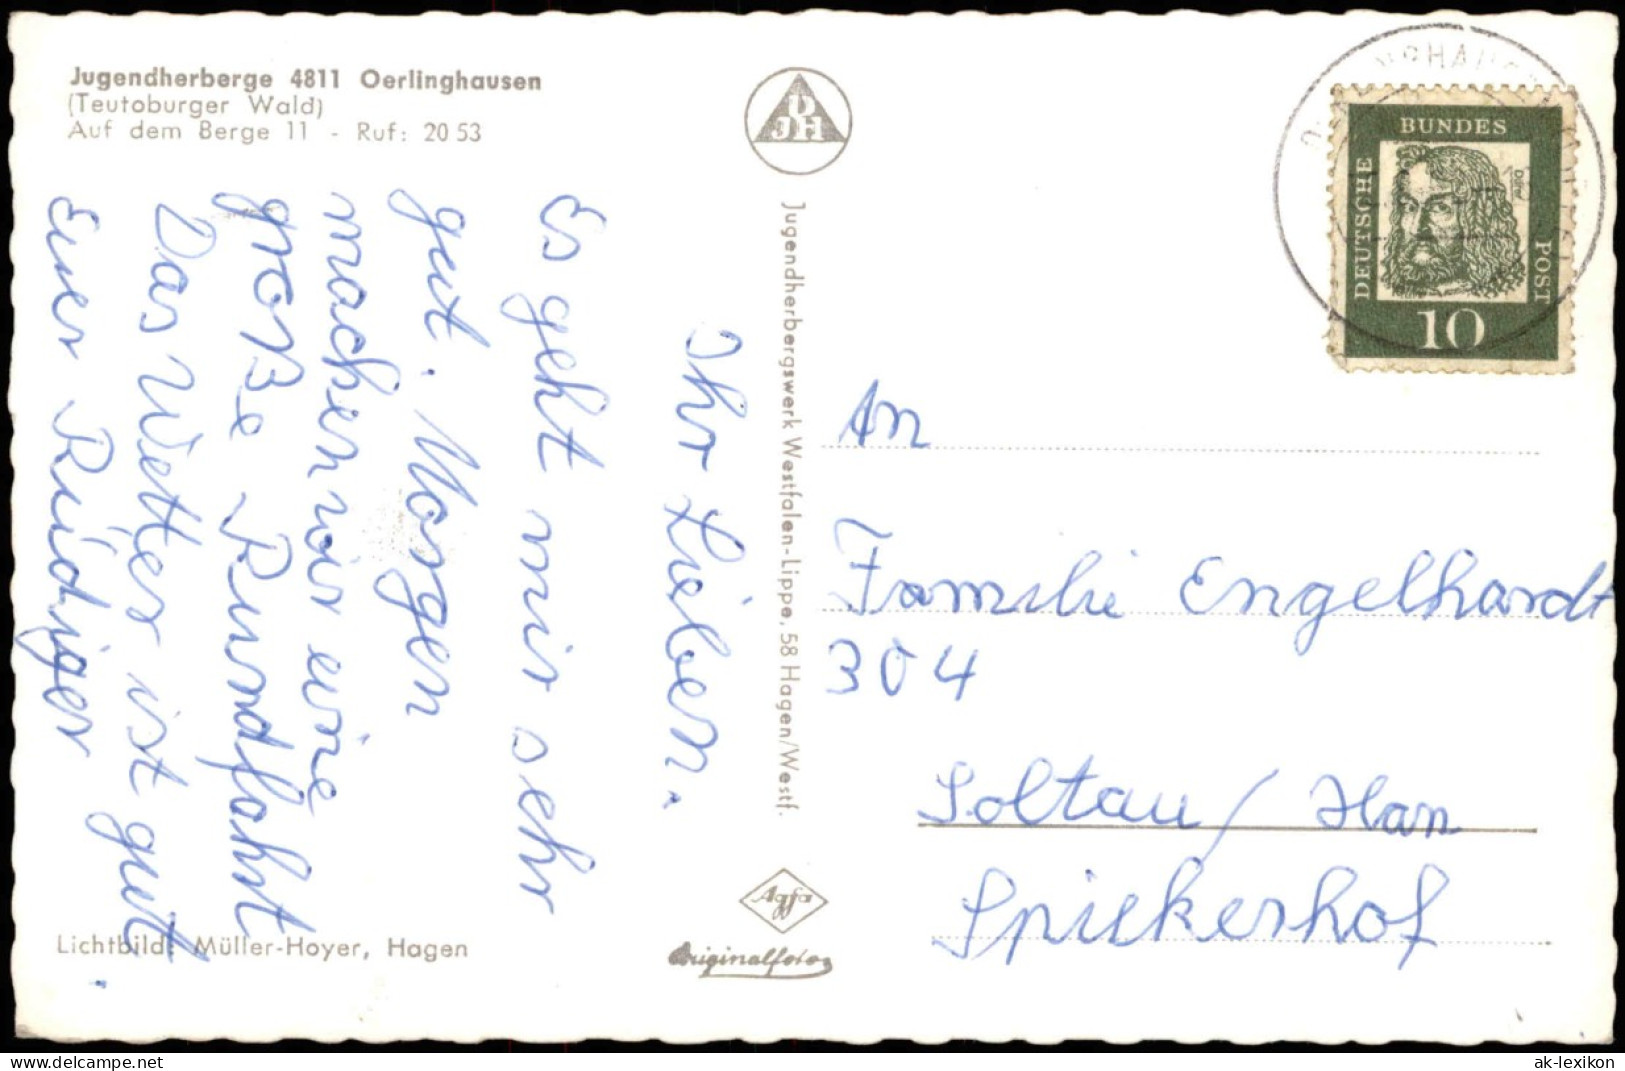 Jugendherberge 4811 Oerlinghausen
(Teutoburger Wald)
Auf dem Berge 11 - Ruf: 20 53
DJH
Ihr Lieben.
Es geht mir sehr
gut. Morgen
machen wir eine
große Rundfahrt
Das Wetter ist gut.
Euer Rüdiger
Jugendherbergswerk Westfalen-Lippe, 58 Hagen/Westf.
Lichtbild: Müller-Hoyer, Hagen
Agfa
Originalfoto
DEUTSCHE
BUNDES
POST
Dürer
10
An
Familie Engelhardt
304
Soltau/Han
Spiekerhof
delcampe.net
ak-lexikon